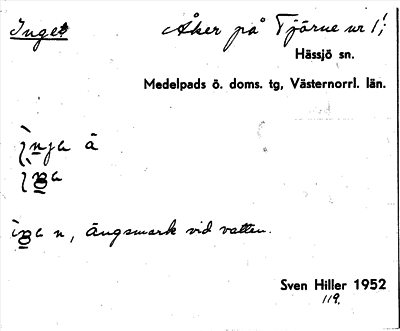 Inget Åker på Tjärne nr 1;
Hässjö sn.
Medelpads ö. doms. tg, Västernorrl. län.
ä
n, ängsmark vid vatten.
Sven Hiller 1952
119.